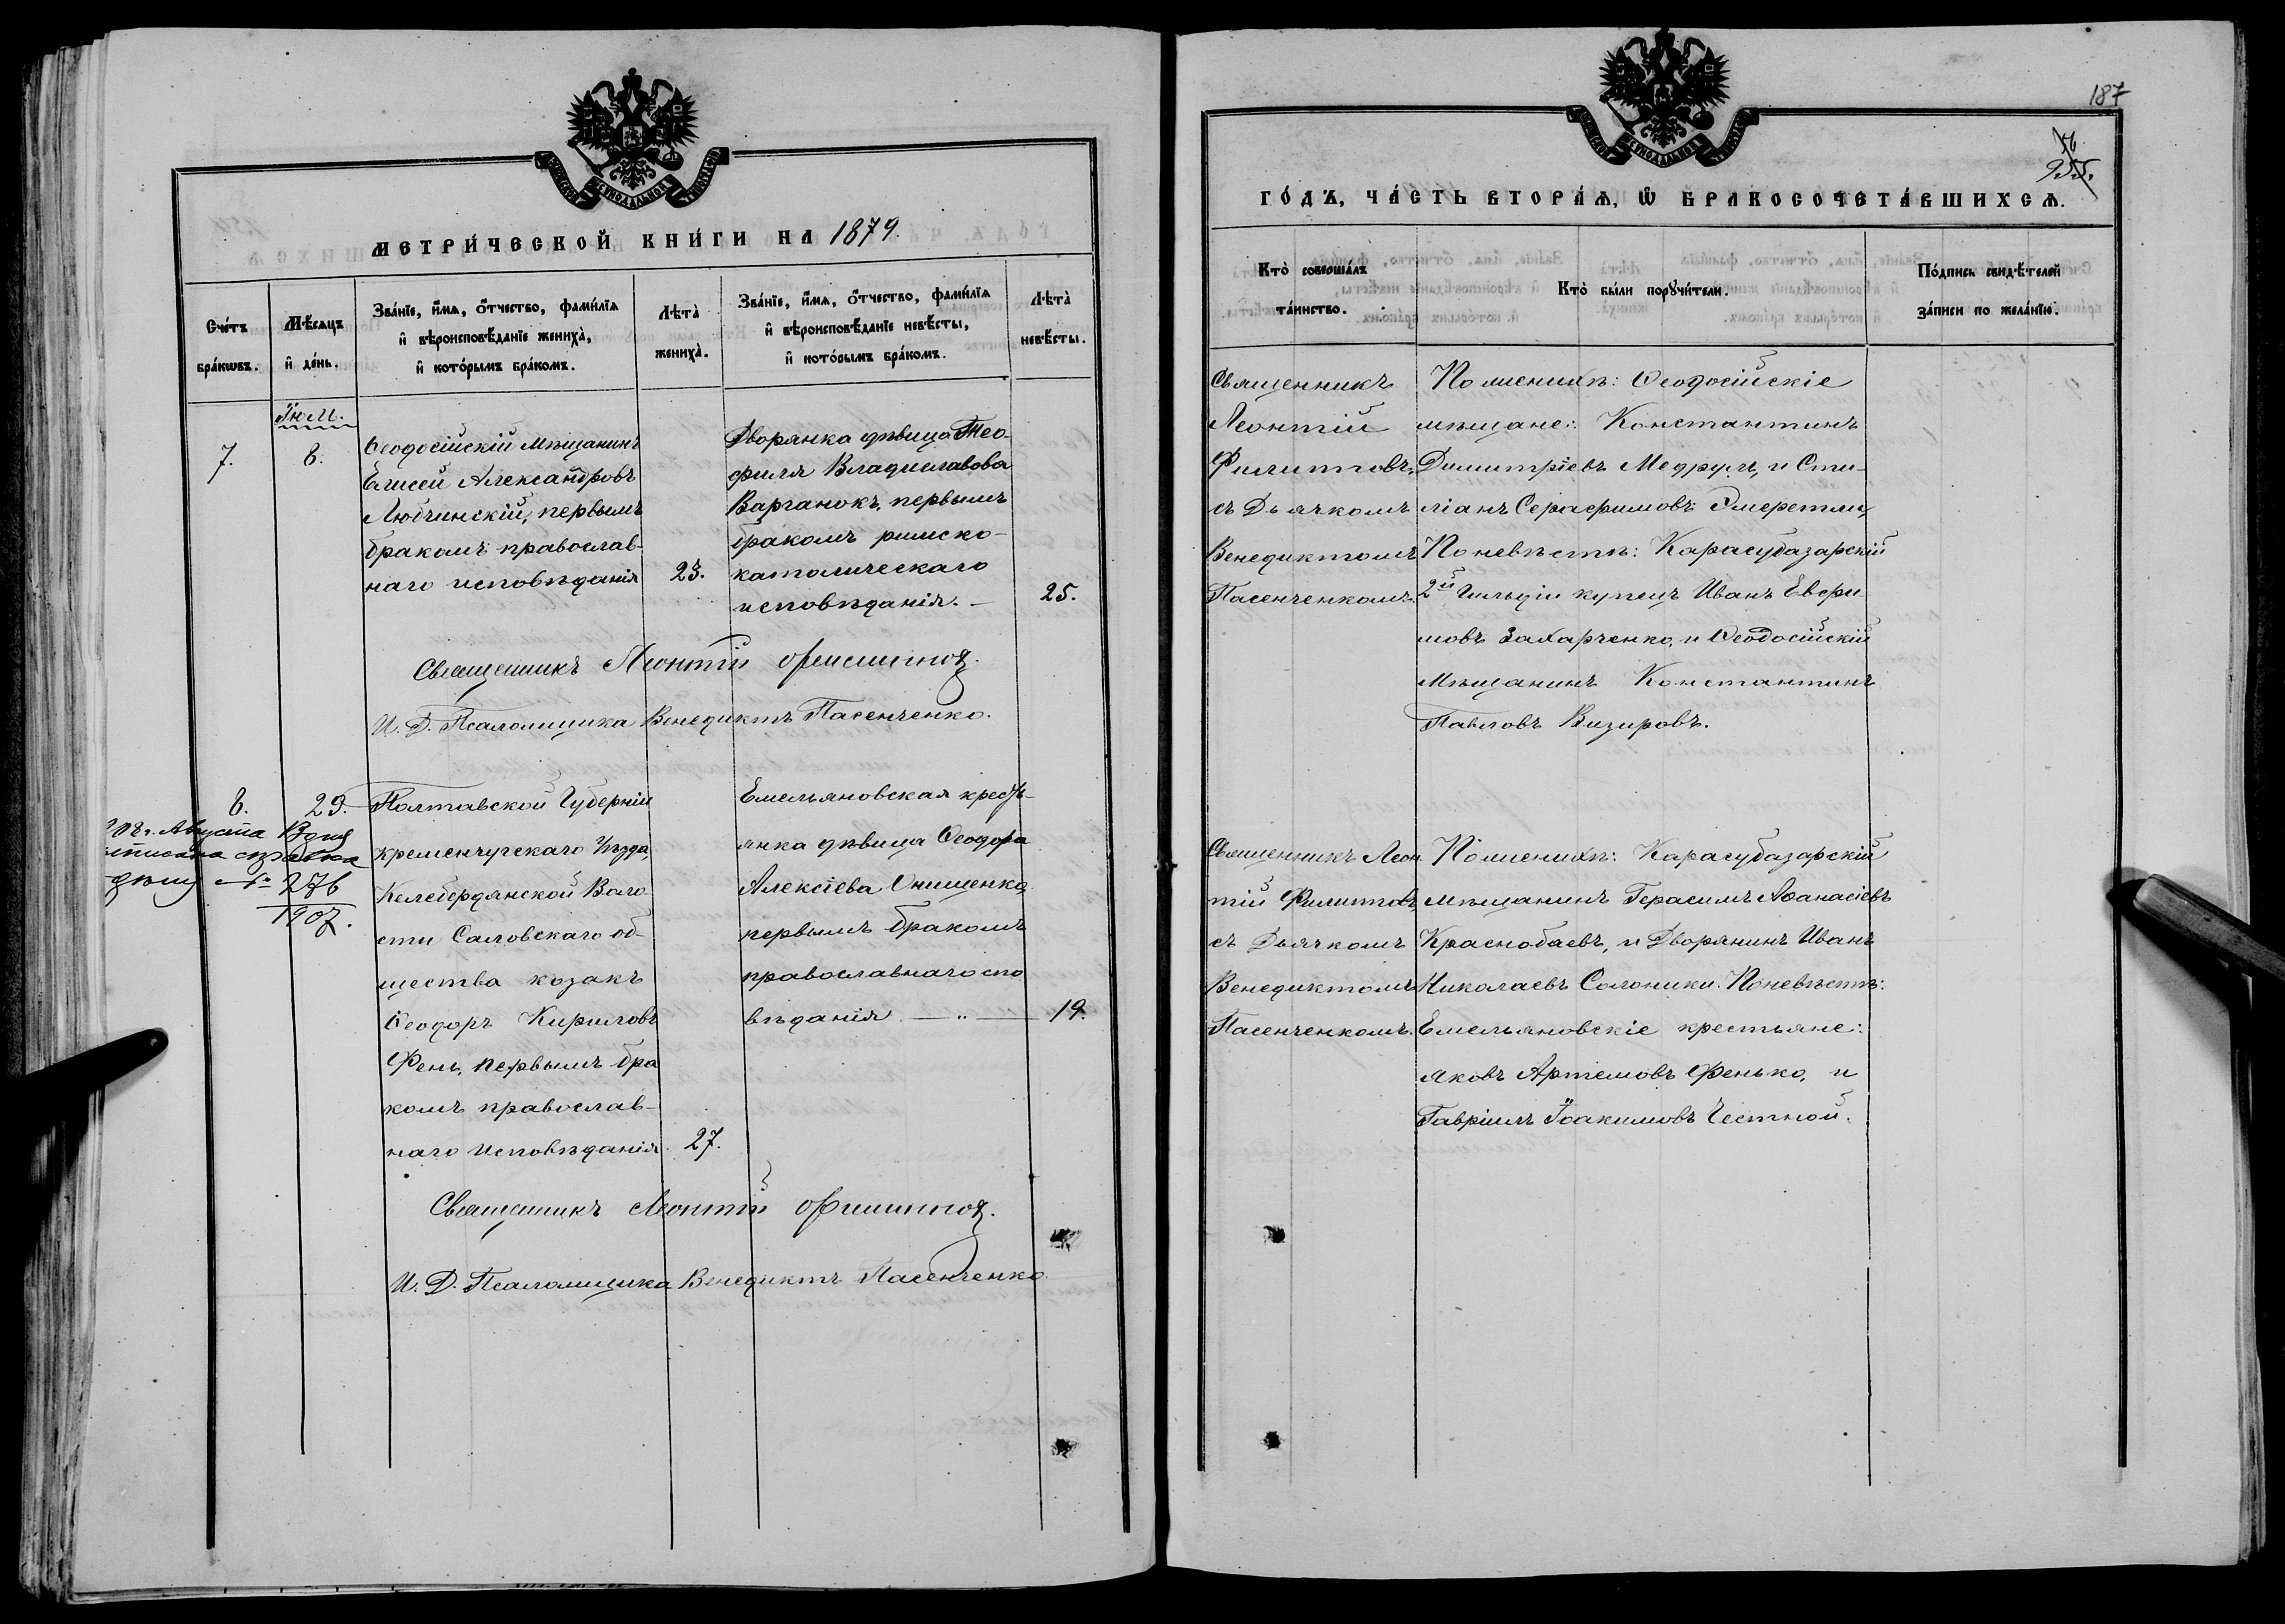 МЕТРИ́ЧЕСКОЙ КНИ́ГИ НА 1879.
Сче́тъ бра́кѡвъ.
Мѣ́сяцъ и҆ де́нь.
Зва́нїе, и҆́мѧ, ѻ҆́тчество, фами́лїѧ
и҆ вѣроисповѣ́данїе жениха̀,
и҆ кото́рымъ бра́комъ.
Лѣта̀ жениха̀.
Зва́нїе, и҆́мѧ, ѻ҆́тчество, фами́лїѧ
и҆ вѣроисповѣ́данїе невѣ́сты,
и҆ кото́рымъ бра́комъ.
Лѣта̀ невѣ́сты.
7.
8.
Ѳеодосійскій мѣщанинъ
Елисей Александровъ
Любчинскій, первымъ
бракомъ православ-
наго исповѣданія
23.
Дворянка дѣвица Тео-
филя Владиславова
Варганокъ, первымъ
бракомъ римско-
католическаго
исповѣданія. —
25.
Священникъ Леонтій Филиппов.
И. Д. Псаломщика Венедиктъ Пасенченко.
8.
29.
Августа
276
1907.
Полтавской Губерніи
Кременчугскаго Уѣзда,
Келебердянской Воло
сти Саловскаго об-
щества козакъ
Ѳеодоръ Кириловъ
Фень, первымъ бра
комъ православ-
наго исповѣданія.
27.
Емельяновская кресть-
янка дѣвица Ѳеодора
Алексіева Онищенко,
первымъ бракомъ
православнаго спо
вѣданія — „ —
19.
Священникъ Леонтій Филиппов.
И. Д. Псаломщика Венедиктъ Пасенченко.
187
255.
ГО́ДЪ, ЧА́СТЬ ВТОРА́Ѧ, Ѡ҆ БРАКОСОЧЕТА́ВШИХСѦ.
Кто̀ соверша́лъ
та́инство.
Кто̀ бы́ли порꙋчи́тели.
По́дпись свидѣ́телей
за́писи по жела́нїю.
Священникъ
Леонтій
Филипповъ,
съ Дьячкомъ
Венедиктомъ
Пасенченкомъ.
По женихѣ: Ѳеодосійскіе
мѣщане: Константинъ
Димитріевъ Медрулъ, и Сти-
ліанъ Серафимовъ Эмеретли,
По невѣстѣ: Карасубазарскій
2й Гильдіи купецъ Иванъ Евфи
мовъ Захарченко, и Ѳеодосійскій
Мѣщанинъ Константинъ
Павловъ Визировъ.
Священникъ Леон
тій Филипповъ,
съ Дьячкомъ
Венедиктомъ
Пасенченкомъ.
По женихѣ: Карасубазарскій
мѣщанинъ Герасимъ Аѳанасіевъ
Краснобаевъ, и Дворянинъ Иванъ
Николаевъ Солоники. По невѣстѣ:
Емельяновскіе крестьяне:
Яковъ Артемовъ Фенько, и
Гавріилъ Іоакимовъ Честной.